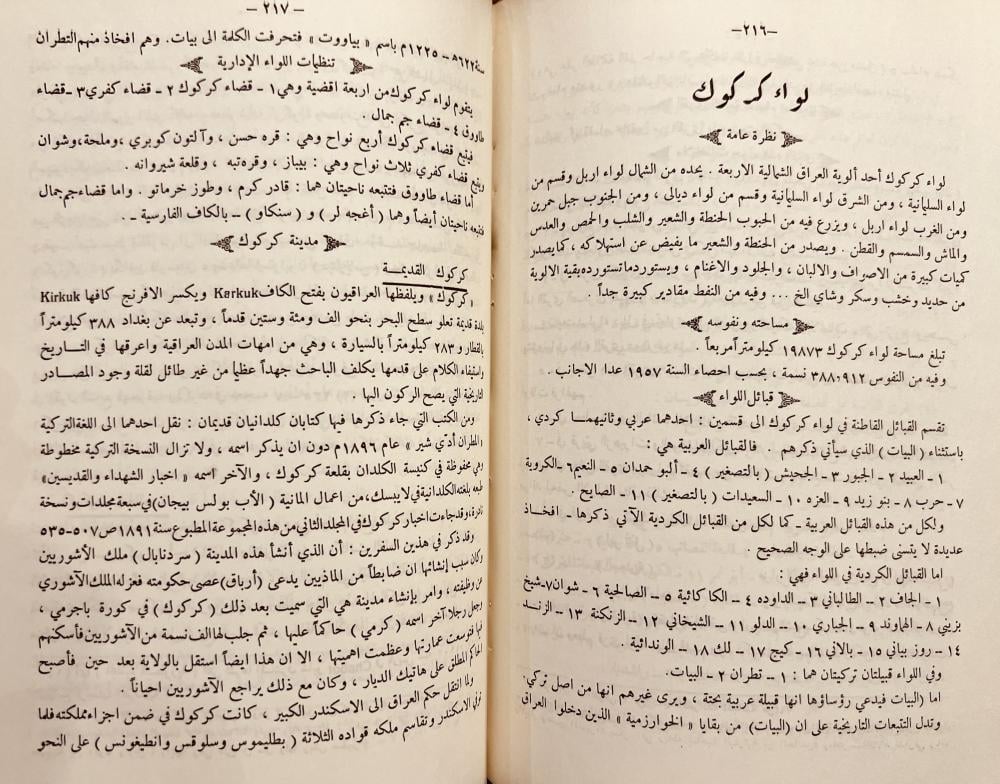 -٢١٦-
لواء كركوك
نظرة عامة
لواء كركوك أحد ألوية العراق الشمالية الاربعة . يحده من الشمال لواء اربل وقسم من
لواء السليمانية ، ومن الشرق لواء السليمانية وقسم من لواء ديالى ، ومن الجنوب جبل حمرين
ومن الغرب لواء اربل ، ويزرع فيه من الحبوب الحنطة والشعير والشلب والحمص والعدس
والماش والسمسم والقطن . ويصدر من الحنطة والشعير ما يفيض عن استهلاكه ، كما يصدر
كميات كبيرة من الاصراف والالبان ، والجلود والاغنام ، ويستورد ما تستورده بقية الالوية
من حديد وخشب وسكر وشاي الخ ... وفيه من النفط مقادير كبيرة جداً .
مساحته ونفوسه
تبلغ مساحة لواء كركوك ١٩٨٧٣ كيلومتراً مربعاً .
وفيه من النفوس ٣٨٨,٩١٢ نسمة ، بحسب احصاء السنة ١٩٥٧ عدا الاجانب .
قبائل اللواء
تقسم القبائل القاطنة في لواء كركوك الى قسمين : احدهما عربي وثانيهمـا كردي ،
باستثناء ( البيات ) الذي سيأتي ذكرهم . فالقبائل العربية هي :
١ ــ العبيد ٢ ــ الجبور ٣ ــ الجحيش ( بالتصغير ) ٤ ــ ألبو حمدان ٥ ــ النعيم ٦ــ الكروية
٧ ــ حرب ٨ ــ بنو زيد ٩ ــ العزه ١٠ ــ السعيدات ( بالتصغير ) ١١ ــ الصايح .
ولكل من هذه القبائل العربية ــ كما لكل من القبائل الكردية الآتي ذكرها ــ افخـاذ
عديدة لا يتسنى ضبطها على الوجه الصحيح .
اما القبائل الكردية في اللواء فهي :
١ ــ الجاف ٢ ــ الطالباني ٣ ــ الداوده ٤ ــ الكاكائية ٥ ــ الصالحية ٦ ــ شوان ٧ــ شيخ
بزيني ٨ ــ الهاوند ٩ ــ الجباري ١٠ ــ الدلو ١١ ــ الشيخاني ١٢ ــ الزنكنة ١٣ ــ الزنـد
١٤ ــ روز بياني ١٥ ــ بالاني ١٦ ــ كيج ١٧ ــ لك ١٨ ــ الوندائية .
وفي اللواء قبيلتان تركيتان هما : ١ ــ تطران ٢ ــ البيات.
اما (البيات فيدعي رؤساؤها انها قبيلة عربية بحتة ، ويرى غيرهم انها من اصل تركي.
وتدل التتبعات التاريخية على ان (البيات) من بقايا « الخوارزمية » الذين دخلوا العراق
ــ ٢١٧ ــ
سنة ٦٢٢هـ ــ ١٢٢٥م باسم « بياووت » فتحرفت الكلمة الى بيات. وهم افخاذ منهم التطران
تنظيات اللواء الإدارية
يتقوم لواء كركوك من اربعة اقضية وهي ١ ــ قضاء كركوك ٢ ــ قضاء كفري ٣ــ قضاء
طاووق ٤ ــ قضاء جم جمال .
فيتبع قضاء كركوك أربع نواح وهي : قره حسن ، وآلتون كوبري ، وملحة، وشوان
ويتبع قضاء كفري ثلاث نواح وهي : بيباز ، وقره تبه ، وقلعة شيروانه .
أما قضاء طاووق فتتبعه ناحيتان هما : قادر كرم ، وطوز خرماتو . واما قضاء جم جمال
فتتبعه ناحيتان أيضاً وهما ( أغجه لر ) و ( سنكاو ) ــ بالكاف الفارسية ــ .
مدينة كركوك
كركوك القديمـة
« كركوك » ويلفظها العراقيون بفتح الكاف Karkuk ويكسر الافرنج كافها Kirkuk
بلدة قديمة تعلو سطح البحر بنحو الف ومئة وستين قدماً ، وتبعد عن بغداد ٣٨٨ كيلومتراً
بالقطار و ٢٨٣ كيلومتراً بالسيارة ، وهي من امهات المدن العراقية واعرقها في التـاريخ
واستيفاء الكلام على قدمها يكلف الباحث جهداً عظيما من غير طائل لقلة وجود المصـادر
التاريخية التي يصح الركون اليها .
ومن الكتب التي جاء ذكرها فيها كتابان كلدانيان قديمان : نقل احدهما الى اللغة التركية
« المطران أدّي شير » عام ١٨٩٦م دون ان يذكر اسمه ، ولا تزال النسخة التركية مخطوطة
وهي محفوظة في كنيسة الكلدان بقلعة كركوك ، والآخر اسمه « اخبار الشهداء والقديسين »
طبعه بلغته الكلدانية في لايبسك، من اعمال المانية ( الأب بولس بيجان) في سبعة مجلدات ونسخة
نادرة، وقد جاءت اخبار كركوك في المجلد الثاني من هذه المجموعة المطبوع سنة ١٨٩١ ص ٥٠٧ــ ٥٣٥
وقد ذكر في هذين السفرين : أن الذي أنشأ هذه المدينة ( سردنابال ) ملك الآشوريين
وكان سبب إنشائها ان ضابطاً من الماذيين يدعى (أرباق) عصى حكومته فعزله الملك الآشوري
عن وظيفته ، وامر بإنشاء مدينة هي التي سميت بعد ذلك ( كركوك ) في كورة باجرمي ،
وجعل رجلا آخر اسمه ( كرمي ) حاكماً عليها ، ثم جلب لها الف نسمة من الآشوريين فأسكنهم
فيها فتوسعت عمارتها وعظمت اهميتها ، الا ان هذا ايضاً استقل بالولاية بعد حين فأصبح
الحاكم المطلق على هاتيك الديار ، وكان مع ذلك يراجع الآشوريين احياناً .
ولما انتقل حكم العراق الى الاسكندر الكبير ، كانت كركوك في ضمن اجزاء مملكته فلما
توفي الاسكندر وتقاسم ملكه قواده الثلاثة ( بطليموس وسلوقس وانطيغونس ) على النحو